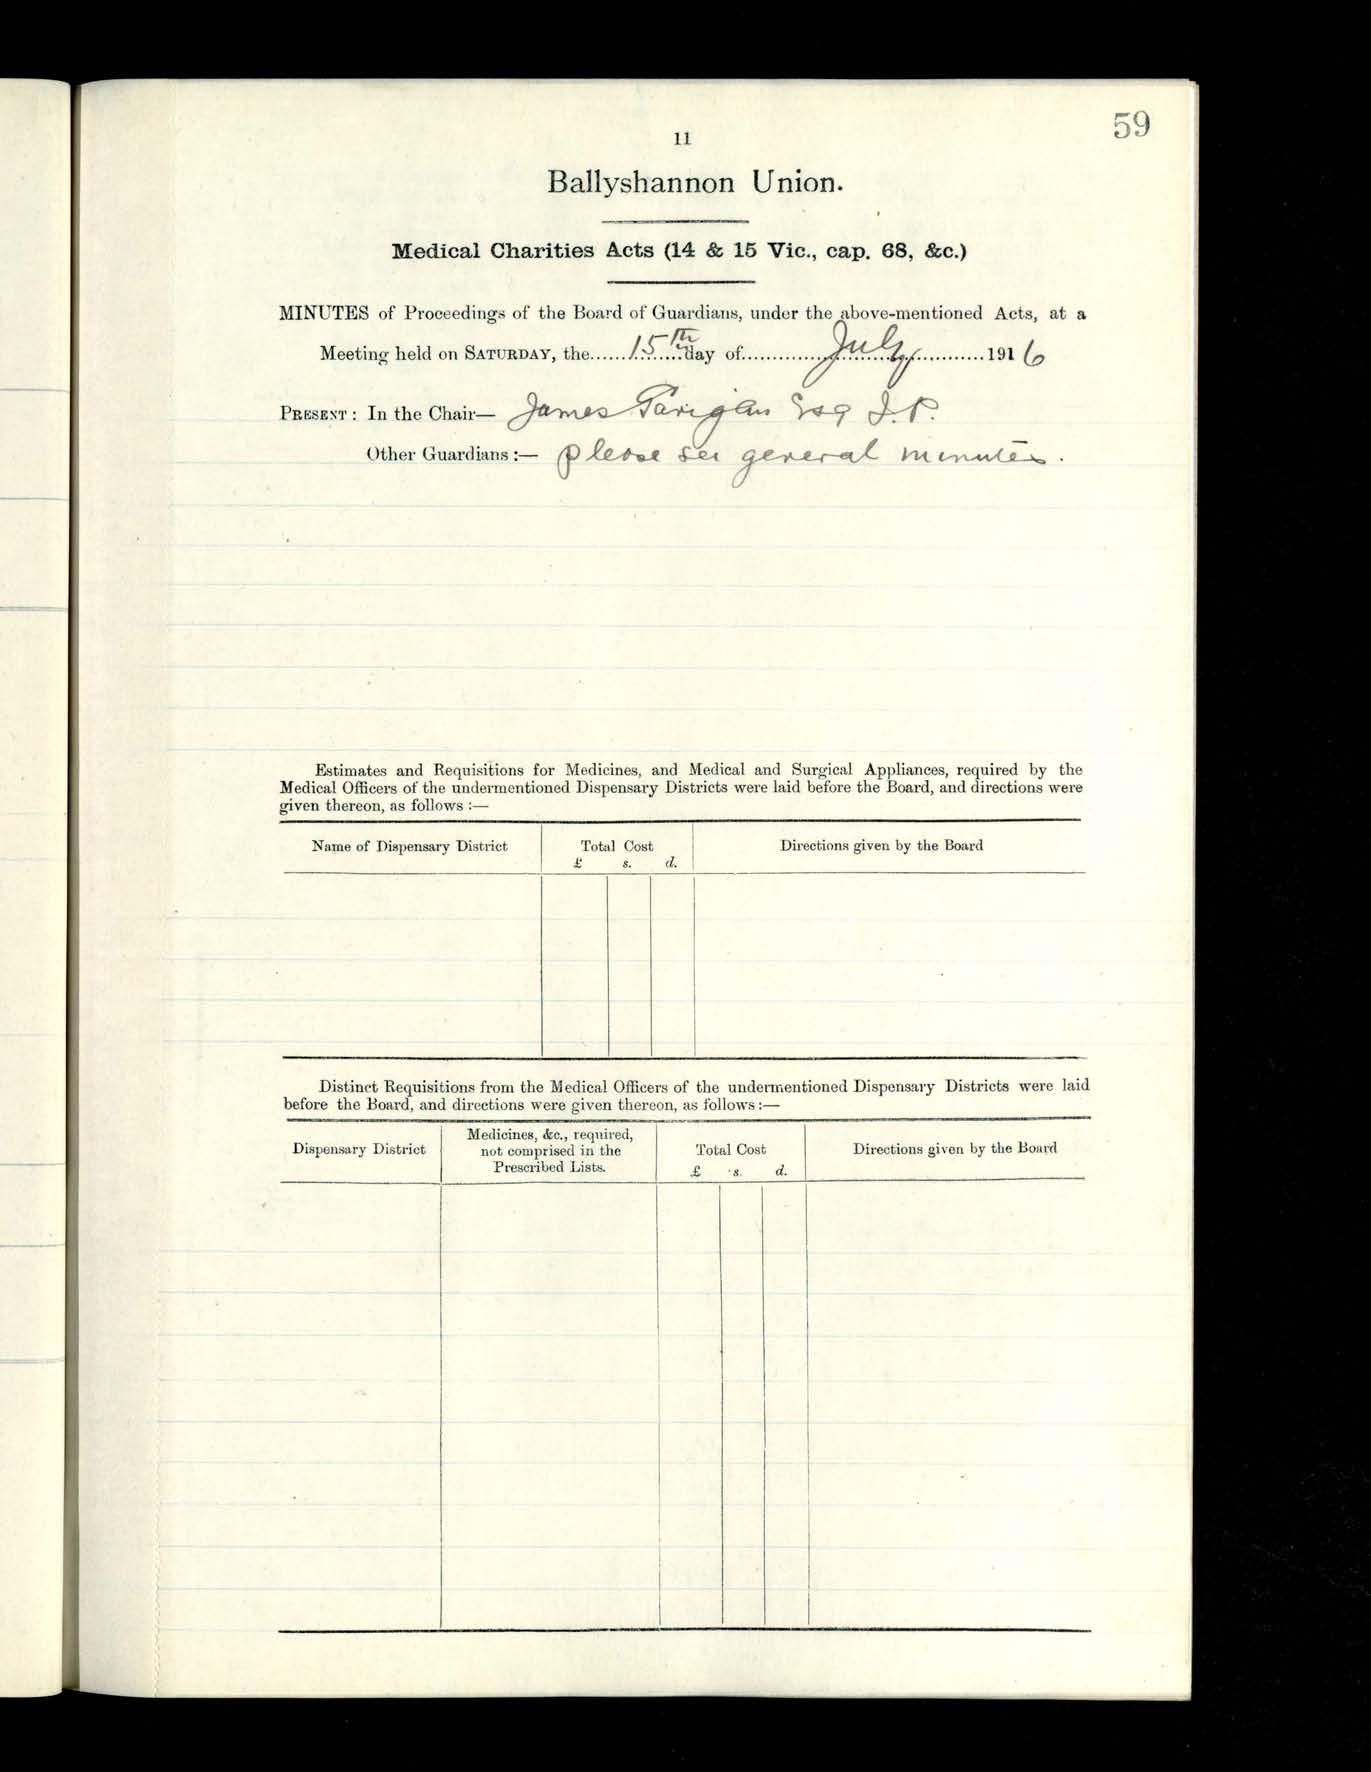 59
11
Ballyshannon Union.
Medical Charities Acts (14 & 15 Vic., cap. 68, &c.)
MINUTES of Proceedings of the Board of Guardians, under the above-mentioned Acts, at a
Meeting held on SATURDAY, the......15th day of............July............1916
PRESENT : In the Chair— James Esq J.P.
Other Guardians :— please see general minutes.
Estimates and Requisitions for Medicines, and Medical and Surgical Appliances, required by the
Medical Officers of the undermentioned Dispensary Districts were laid before the Board, and directions were
given thereon, as follows :—
Name of Dispensary District Total Cost Directions given by the Board
£ s. d.
Distinct Requisitions from the Medical Officers of the undermentioned Dispensary Districts were laid
before the Board, and directions were given thereon, as follows :—
Dispensary District
Medicines, &c., required,
not comprised in the
Prescribed Lists.
Total Cost
£ s. d.
Directions given by the Board